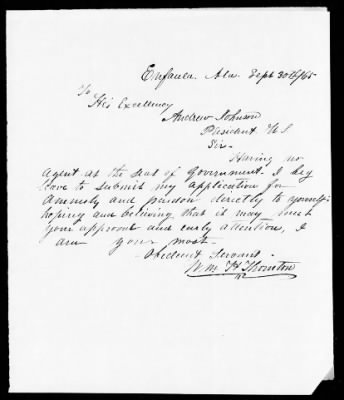 Eufaula. Ala. Sept 30th/65
To
His Excellency
Andrew Johnson
President U S
Sir-
Having no
agent at the seat of government. I beg
leave to submit my application for
amnesty and pardon directly to yourself-
hoping and believing that it may meet
your approval and early attention, I
am your most-
Obedient Servant.
Wm H Thornton